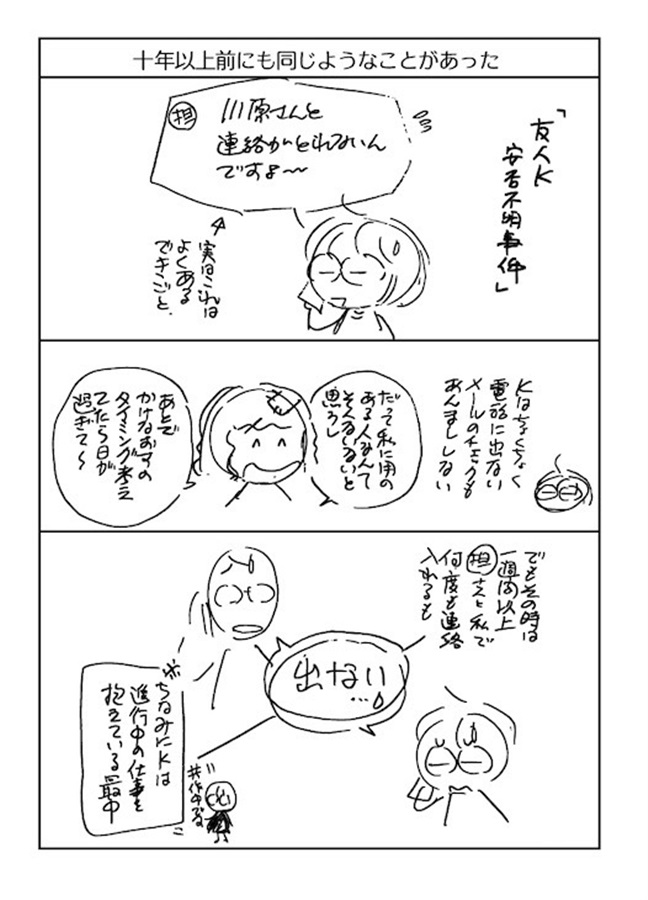 十年以上前にも同じようなことがあった
「友人K
安否不明事件」
担
川原さんと
連絡がとれないん
ですよ〜
実はこれは
よくある
できごと.
Kはちょくちょく
電話に出ない
メールのチェックも
あんまししない
だって私に用の
ある人なんて
そんないないと
思うし
あとで
かけなおすの
タイミング考え
てたら日が
過ぎて〜
でもその時は
一週間以上
担さんと私で
何度も連絡
入れるも
出ない
…。
ちなみにKは
進行中の仕事を
抱えている最中